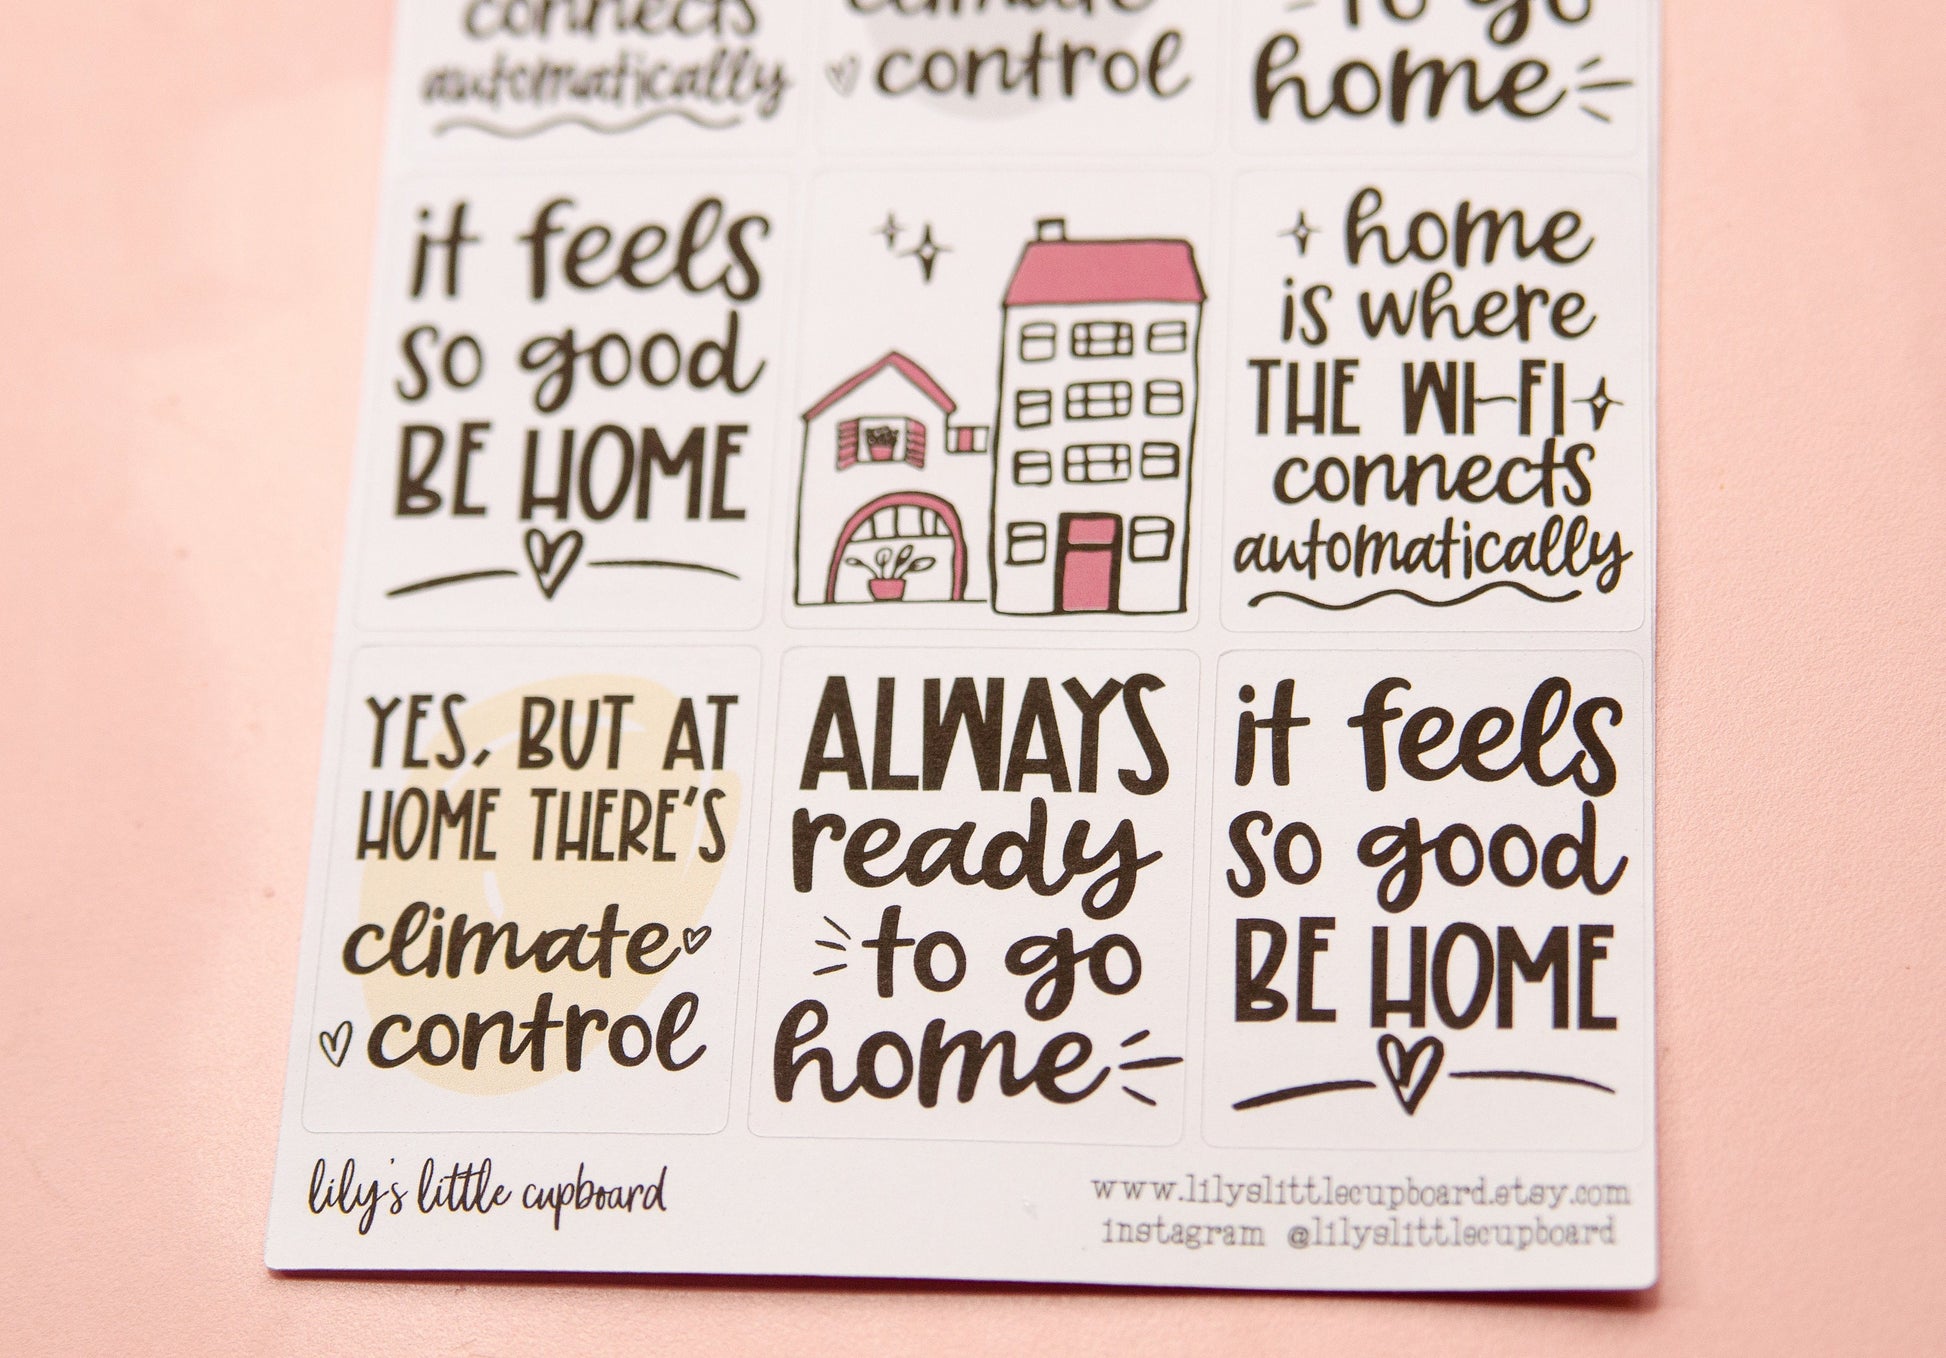 connects
automatically
climate
control
to go
home
it feels
so good
BE HOME
home
is where
THE WI-FI
connects
automatically
YES, BUT AT
HOME THERE'S
climate
control
ALWAYS
ready
to go
home
it feels
so good
BE HOME
lily's little cupboard
www.lilyslittlecupboard.etsy.com
instagram @lilyslittlecupboard